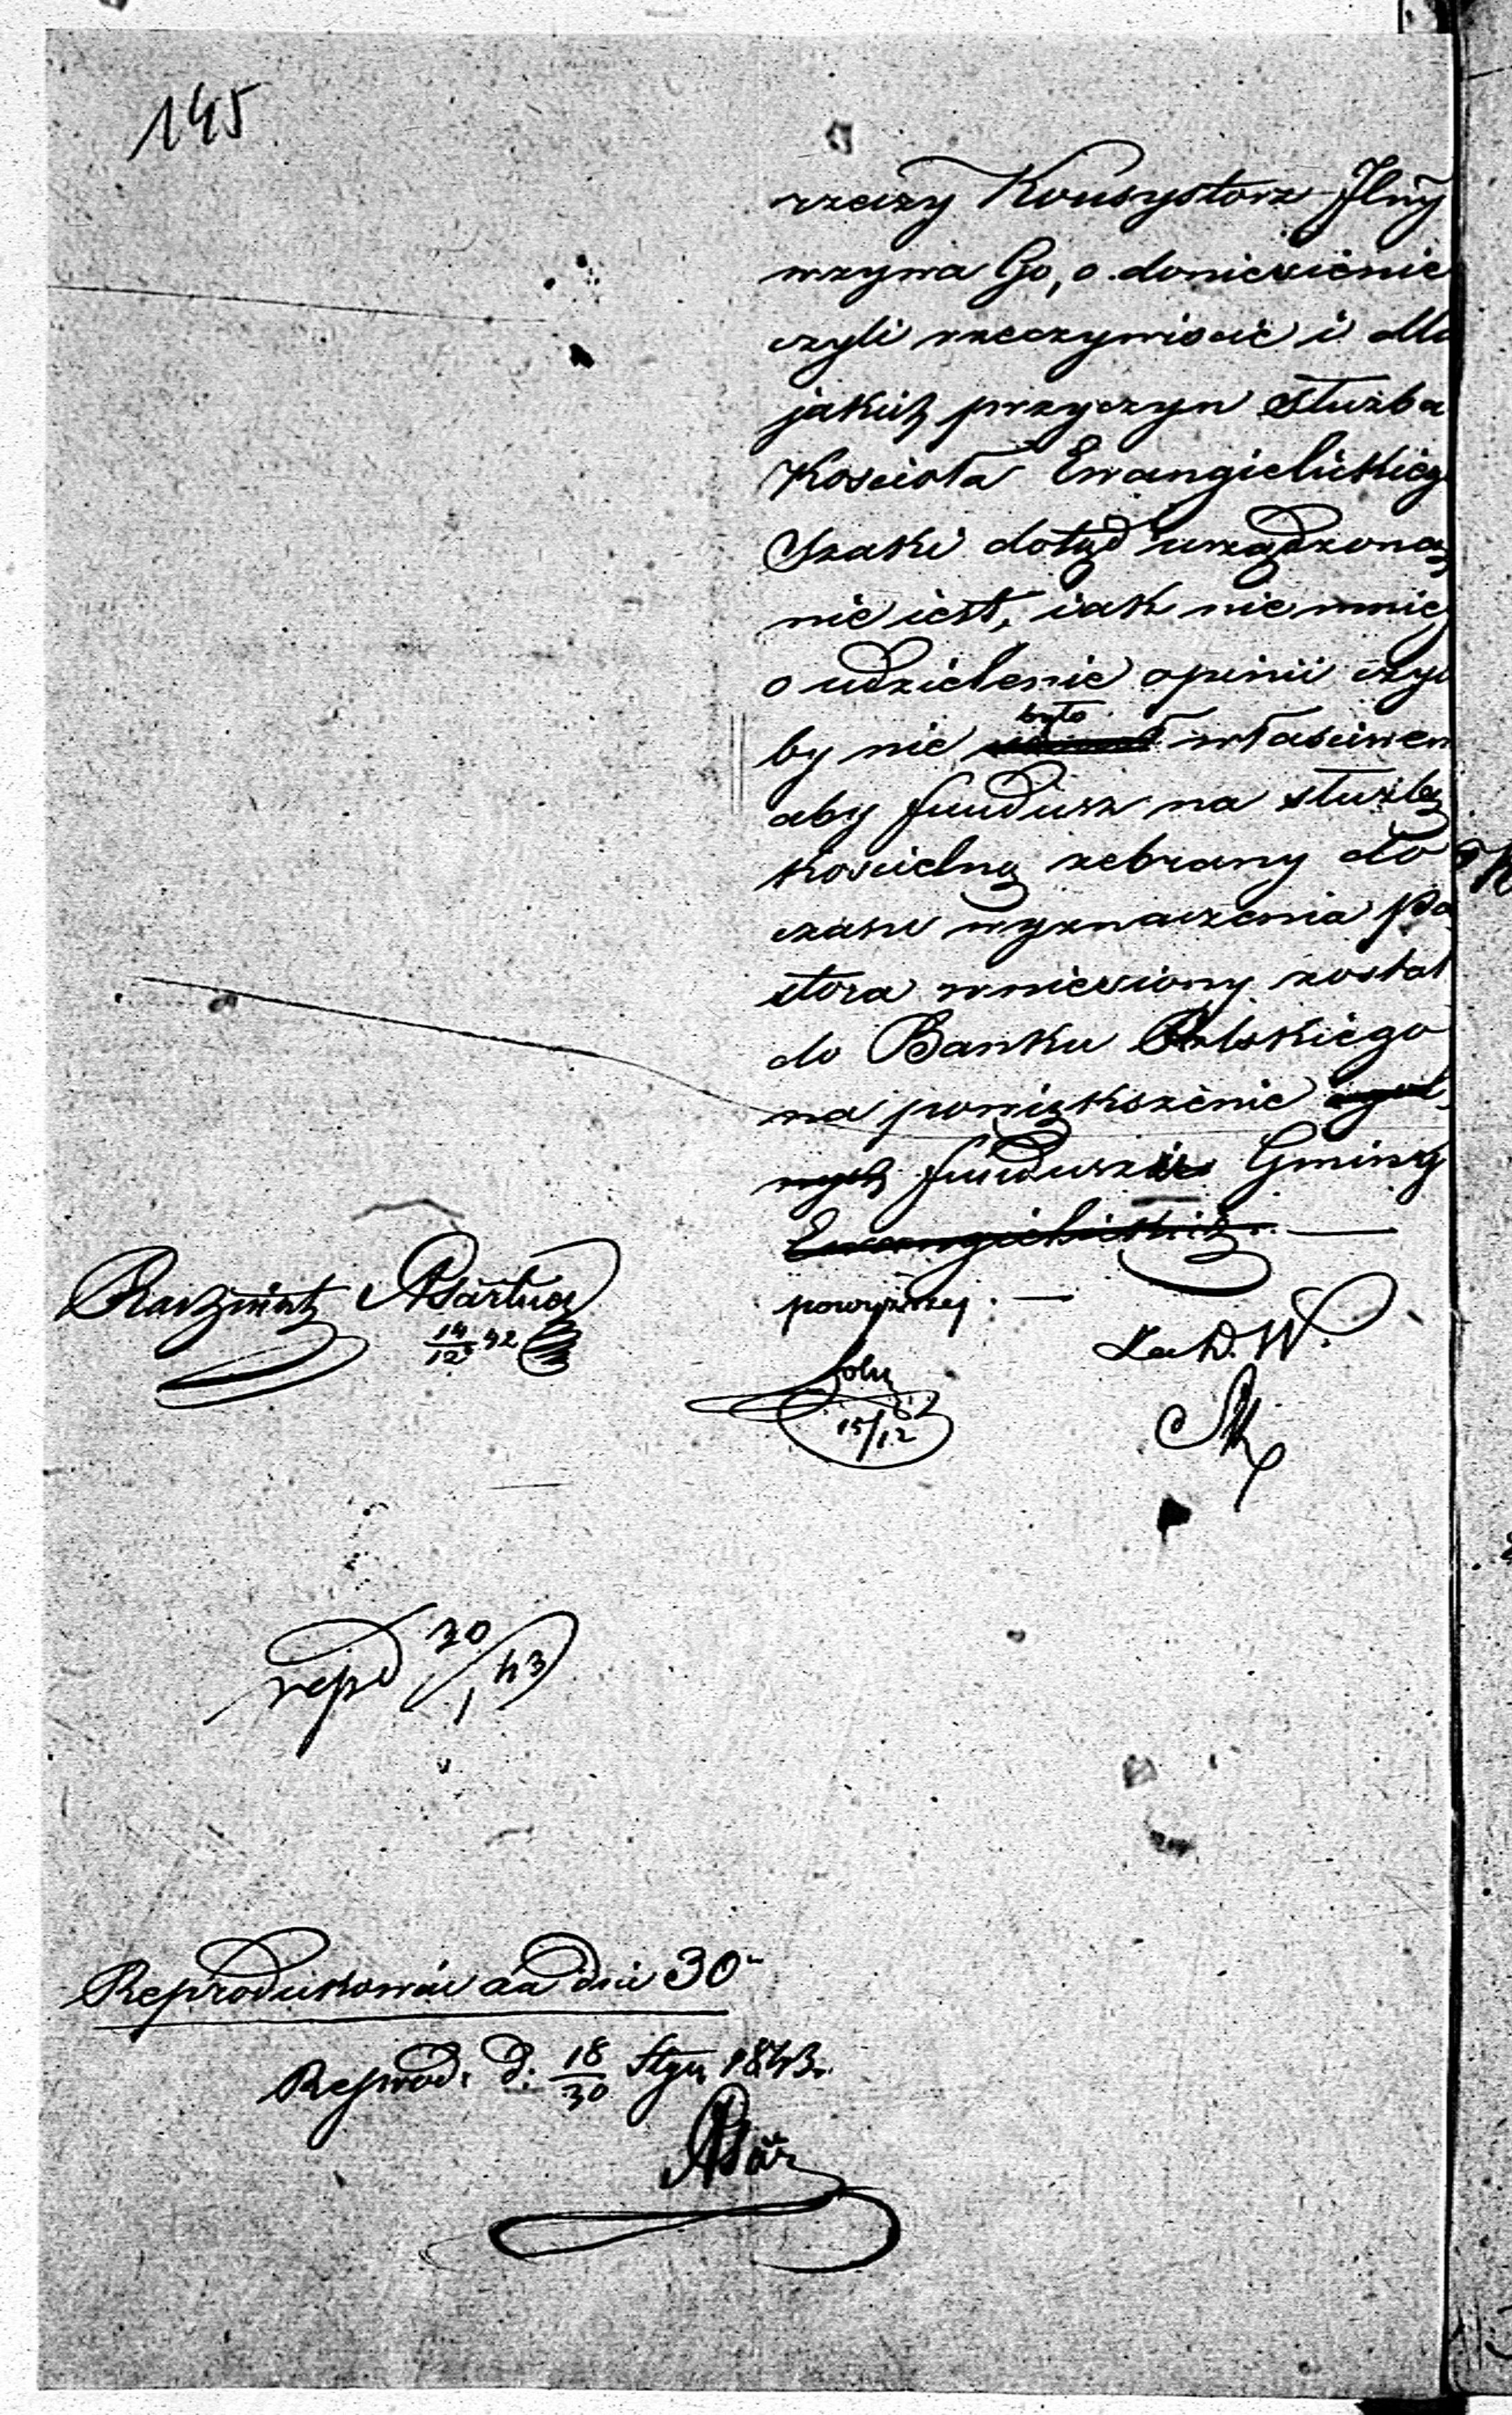 145
rzeczy Konsystorz Jlny
wzywa Go, o doniesienie
czyli rzeczywiscie i dla
jakich przyczyn Służba
Kosciola Ewangielickieg
Szaki dotąd urządzoną
nie iest, iak nie mniey
o udzielenie opinii czyli
by nie było właściwem
aby fundusz na służbę
kościelną zebrany do
czasu wyznaczenia Pa
stora wniesiony został
do Banku Polskiego
na powiększenie ogól
nych funduszu Gminy
Ewangielickich
powyższej.
14/12 42
Za D. W.
15/12 42
repd 30/1 43
Reprodukować za dni 30
Reprod. d. 18/30 Stycz 1843